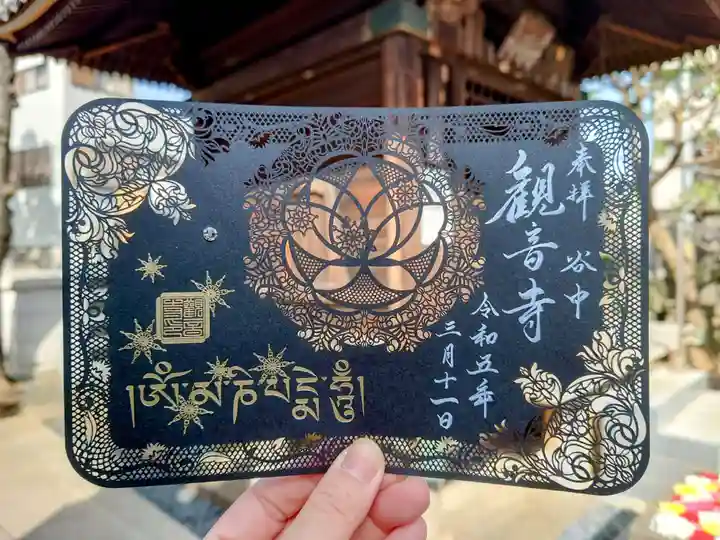 奉拝 谷中
観音寺
令和五年
三月十一日
༄ཨོཾ་མ་ཎི་པདྨེ་ཧཱུྃ།